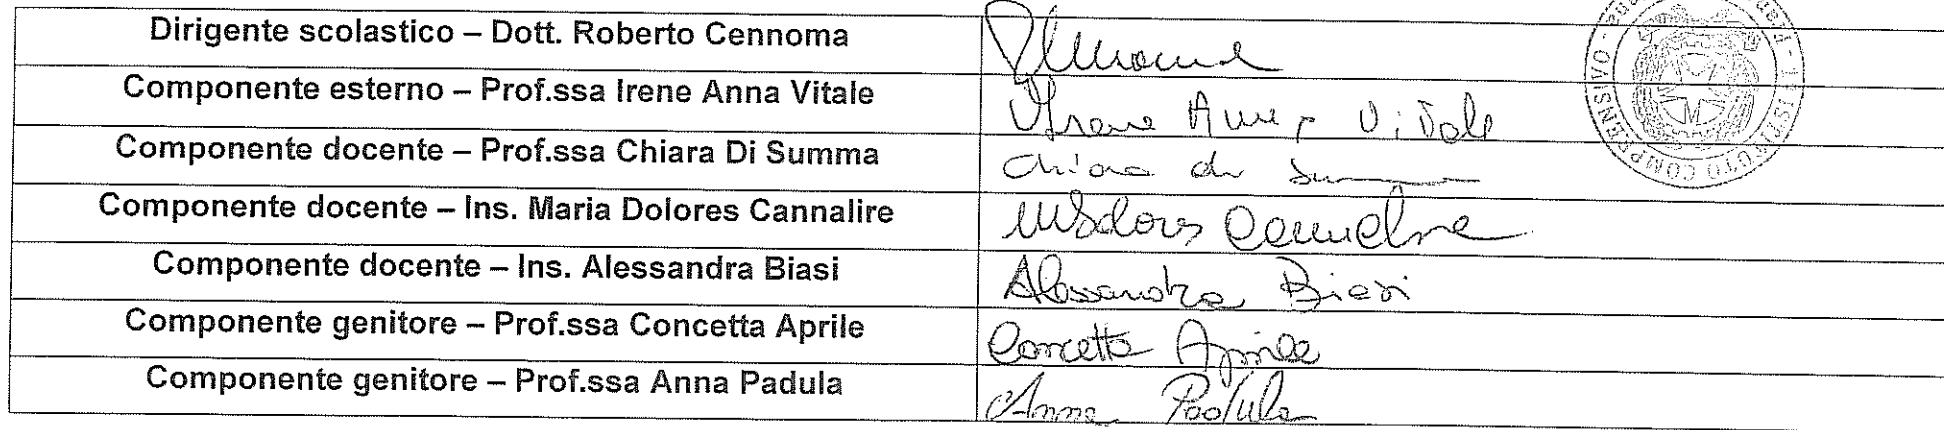 Dirigente scolastico – Dott. Roberto Cennoma
Componente esterno – Prof.ssa Irene Anna Vitale Irene Anna Vitale
Componente docente – Prof.ssa Chiara Di Summa Chiara di Summa
Componente docente – Ins. Maria Dolores Cannalire
Componente docente – Ins. Alessandra Biasi Alessandra Biasi
Componente genitore – Prof.ssa Concetta Aprile Concetta Aprile
Componente genitore – Prof.ssa Anna Padula Anna Padula
ISTITUTO COMPRENSIVO